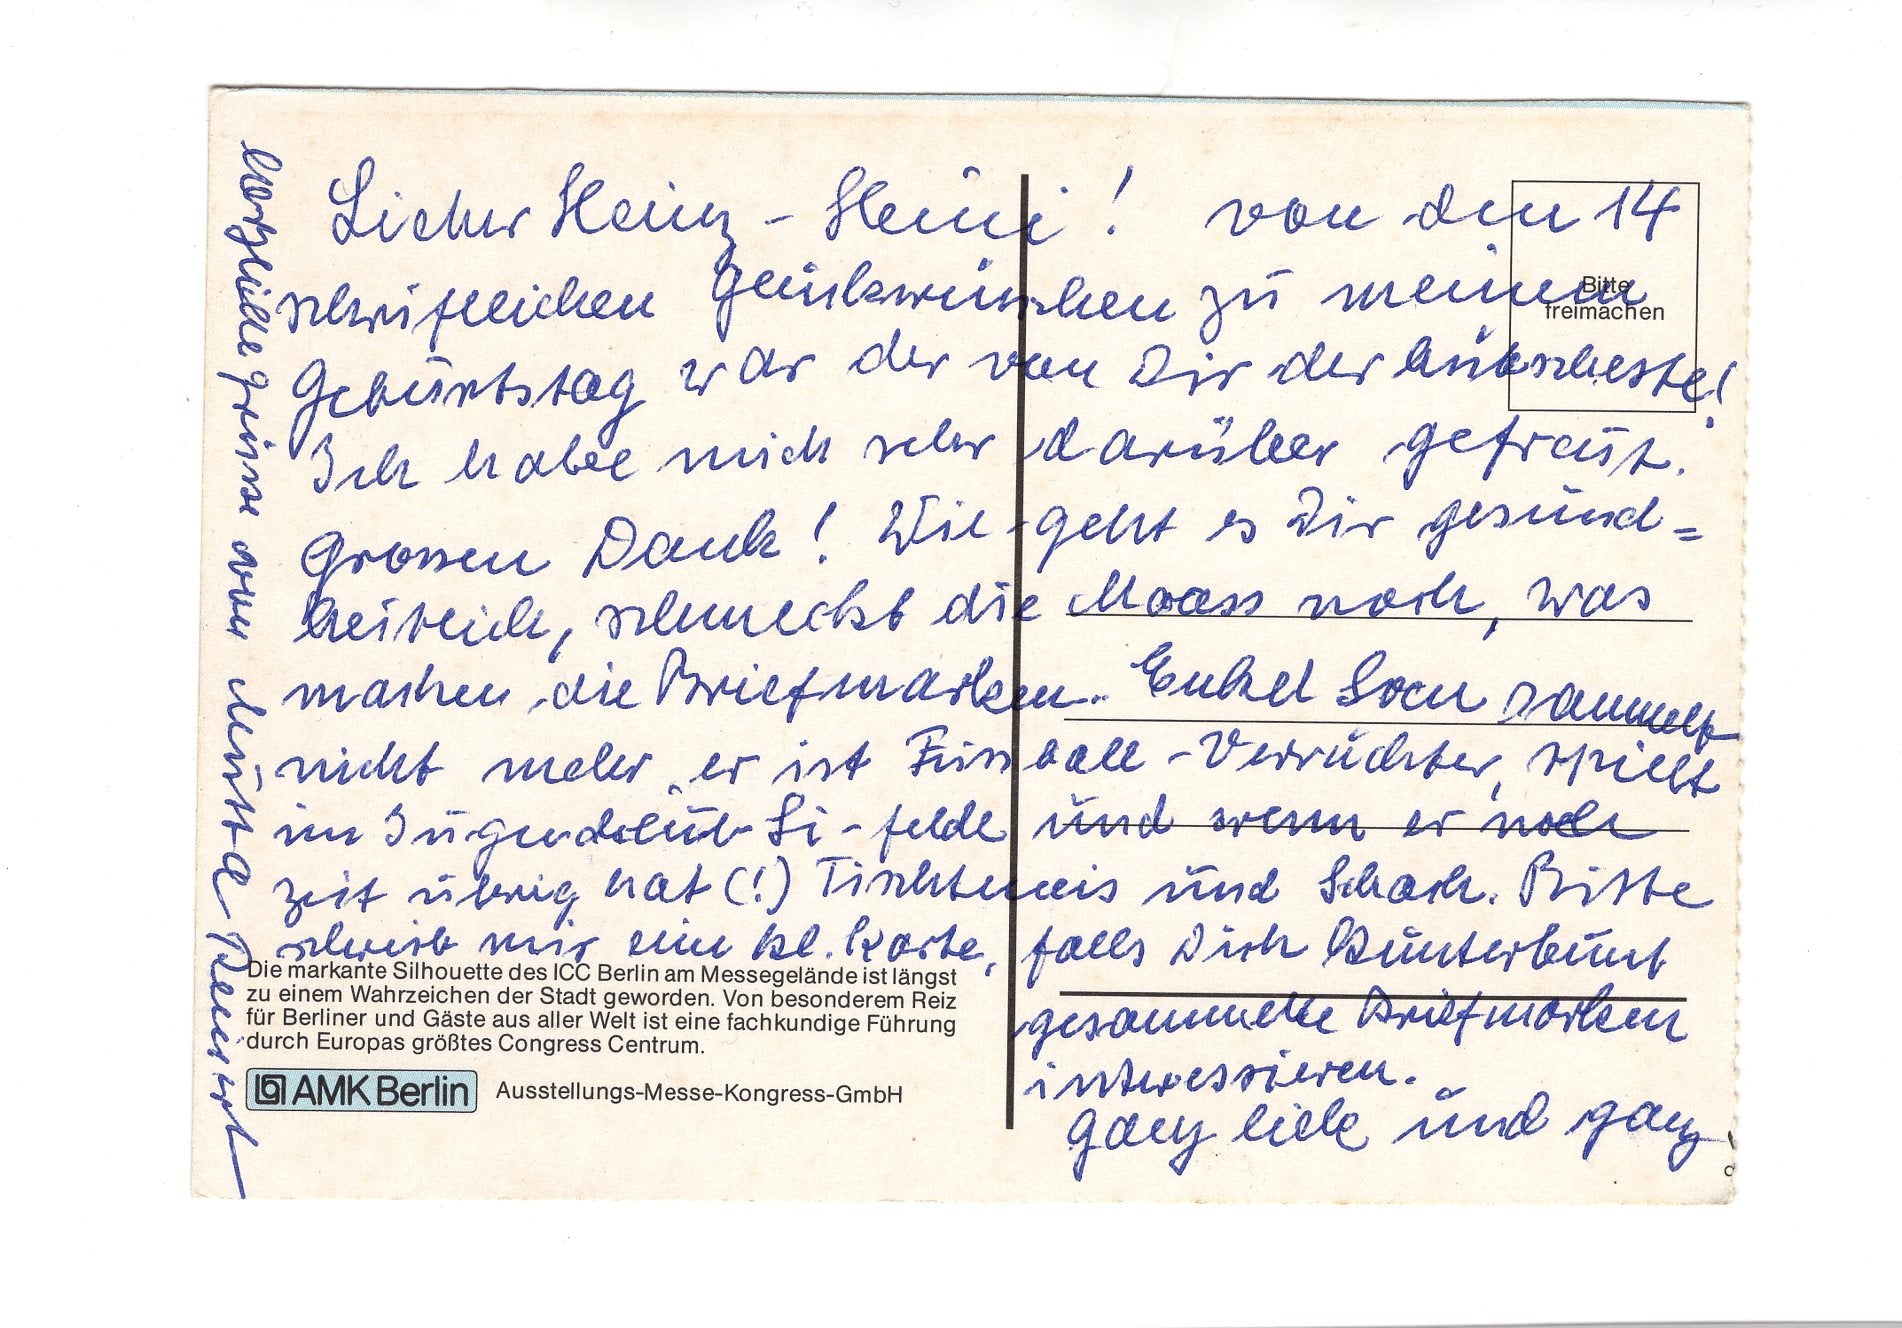 Lieber Heinz-Heini! von den 14
schriftlichen Glückwünschen zu meinem
Geburtstag war der von Dir der hübscheste!
Ich habe mich sehr darüber gefreut.
Grossen Dank! Wie geht es Dir gesund=
heitlich, schmeckt die Maass noch, was
machen die Briefmarken. Enkel Sven sammelt
nicht mehr, er ist Fussball-Verrückter, spielt
im Jugendclub Li-felde und wenn er noch
Zeit übrig hat (!) Tischtennis und Schach. Bitte
schreib mir eine kl. Karte, falls Dich kunterbunt
gesammelte Briefmarken
interessieren.
Ganz liebe und ganz
herzliche Grüsse von
Bitte
freimachen
Die markante Silhouette des ICC Berlin am Messegelände ist längst
zu einem Wahrzeichen der Stadt geworden. Von besonderem Reiz
für Berliner und Gäste aus aller Welt ist eine fachkundige Führung
durch Europas größtes Congress Centrum.
AMK Berlin Ausstellungs-Messe-Kongress-GmbH